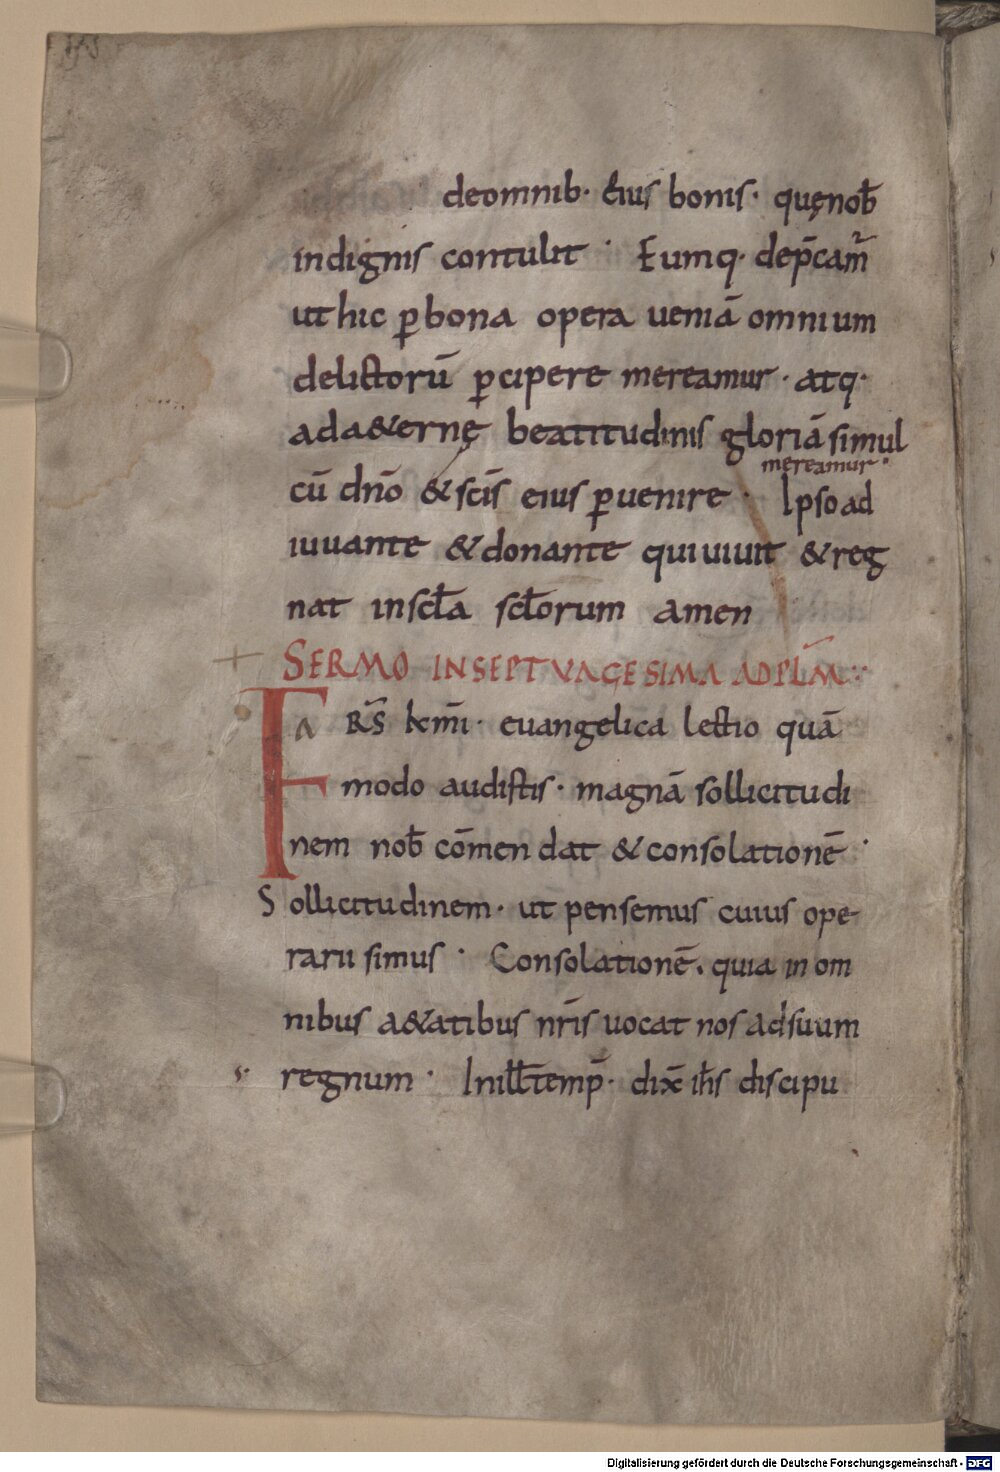 deomnib· Eius bonis· quęnob̄
indignis contulit · Eumq· dep̄cam̄r
ut hic ꝑbona opera ueniā omnium
delictorū ꝑcipere mereamur · atq·
ada&ernę beatitudinis gloriā simul
mereamur·
cū dn̄o & sc̄is eius ꝑuenire · Ipso ad
iuuante & donante qui uiuit & reg
nat insc̄ła sc̄łorum amen
SERMO INSEPTVAGESIMA ADPŁM̄
FRS̄ km̄i · euangelica lectio quā
modo audistis · magnā sollicitudi
nem nob̄ cōmendat & consolationē ·
Sollicitudinem · ut pensemus cuius ope
rarii simus · Consolationē . quia in om
nibus a&atibus nr̄is uocat nos ad suum
s· regnum · Inill̄ temp̄ · dix̄ ih̄s discipu
Digitalisierung gefördert durch die Deutsche Forschungsgemeinschaft - DFG